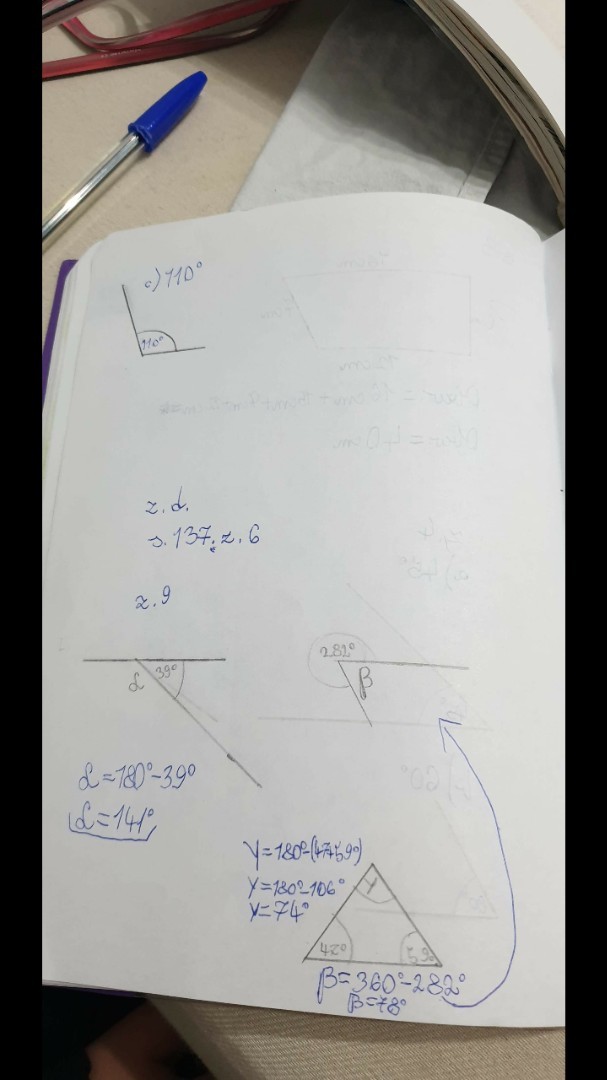 c) 110°
110°
z.d.
s.137. z.6
z.9
39°
α
282°
β
α=180°-39°
α=141°
γ=180°-(47+59°)
γ=180°-106°
γ=74°
γ
42°
59°
β=360°-282°
β=78°